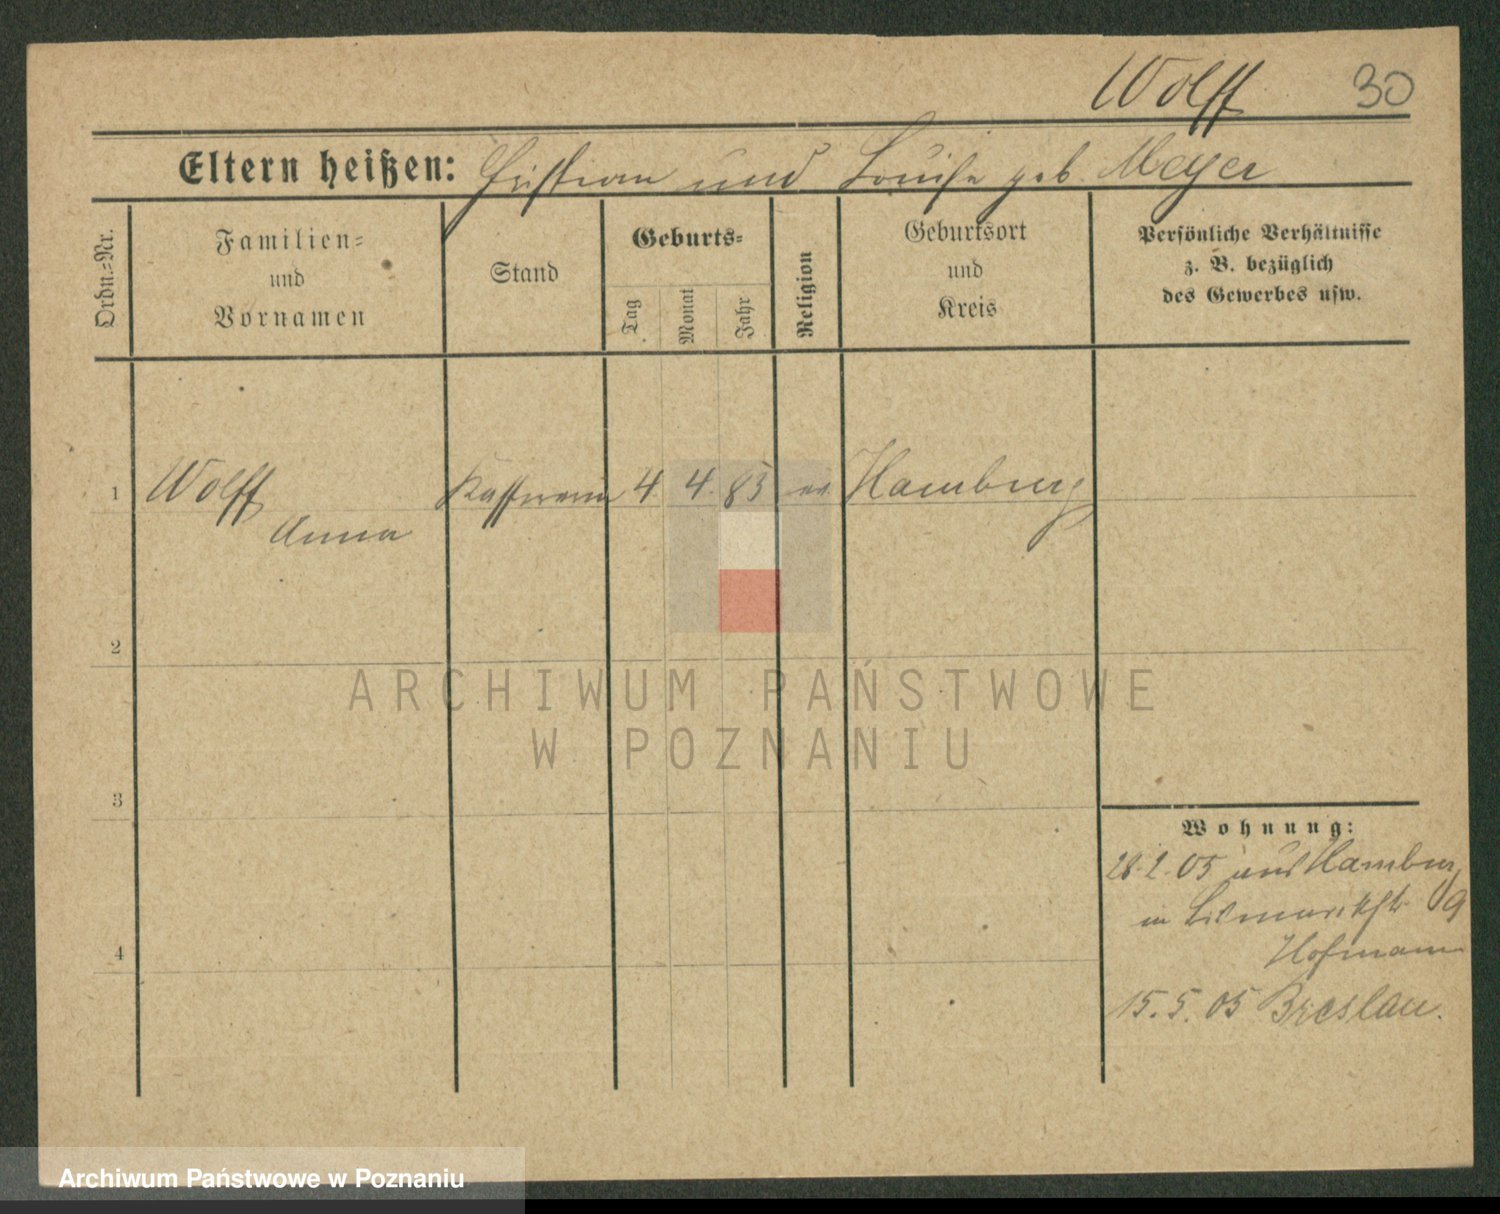 Wolff 30
Eltern heißen: Christian und Louise geb. Meyer
Ordn.-Nr.
Familien-
und
Vornamen
Stand
Geburts-
Tag
Monat
Jahr
Religion
Geburtsort
und
Kreis
Persönliche Verhältnisse
z. B. bezüglich
des Gewerbes usw.
1 Wolff 4. 4. 83 ev Hamburg
Anna
2
3
4
Wohnung:
28.2.05 aus Hamburg
in Bismarckstr 9
Hofmann
15.5.05 Breslau.
ARCHIWUM PAŃSTWOWE
W POZNANIU
Archiwum Państwowe w Poznaniu